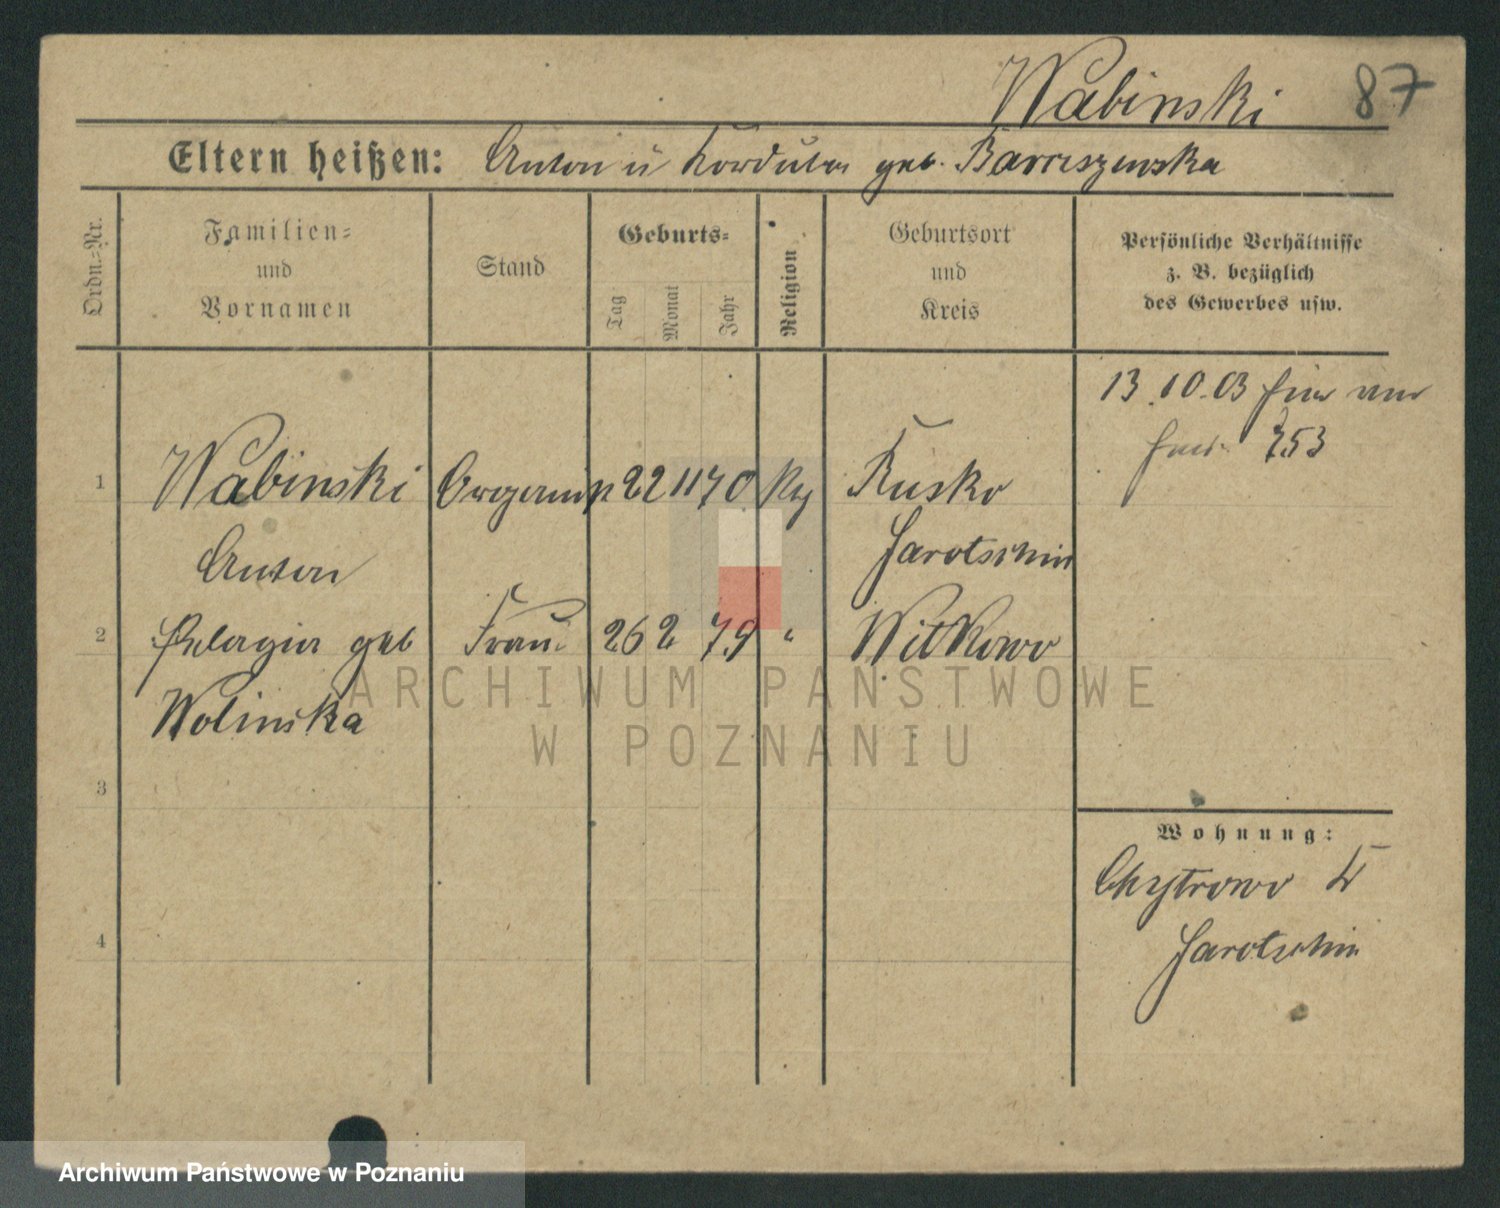 Wabinski 87
Eltern heißen: Anton u Kordula geb.
Ordn.-Nr.
Familien-
und
Vornamen
Stand
Geburts-
Tag
Monat
Jahr
Religion
Geburtsort
und
Kreis
Persönliche Verhältnisse
z. B. bezüglich
des Gewerbes usw.
13.10.03
753
1 Wabinski 22 11 70 Rusko
Anton Jarotschin
2 Pelagia geb Frau 26 2 79 " Witkowo
Wolinska
3
4
Wohnung:
Chytrowo Kr
Jarotschin
ARCHIWUM PAŃSTWOWE
W POZNANIU
Archiwum Państwowe w Poznaniu